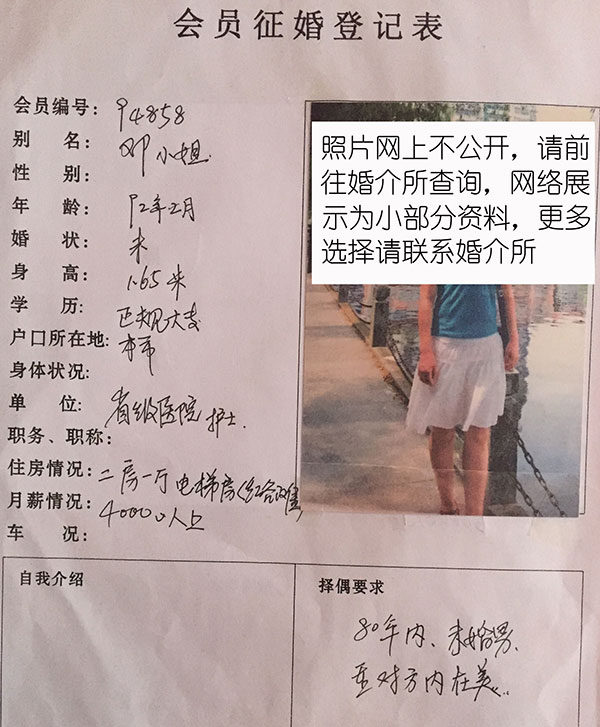 会员征婚登记表
会员编号：94858
别 名：邓小姐
性 别：
年 龄：92年2月
婚 状：未
身 高：1.65米
学 历：正规大专
户口所在地：本市
身体状况：
单 位：省级医院护士.
职务、职称：
住房情况：二房一厅电梯房
月薪情况：4000以上
车 况：
照片网上不公开，请前
往婚介所查询，网络展
示为小部分资料，更多
选择请联系婚介所
自我介绍
择偶要求
80年内、未婚男、
重对方内在美..